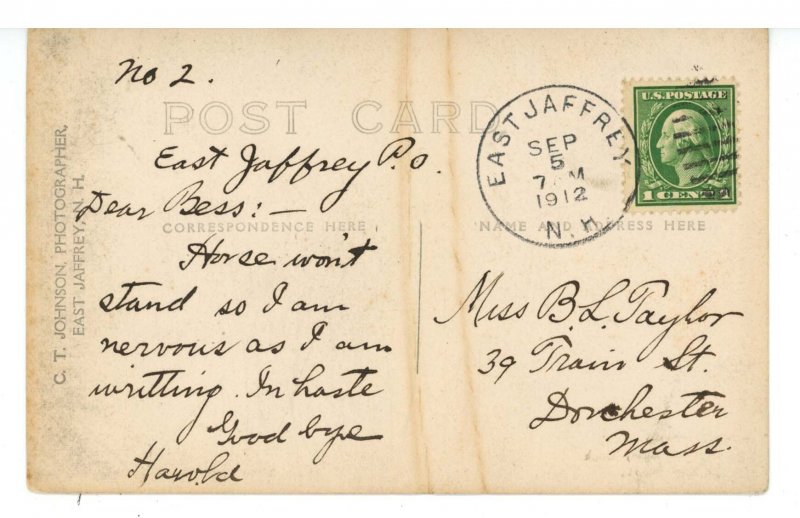 No 2.
POST CARD
East Jaffrey P.O.
Dear Bess:—
CORRESPONDENCE HERE
Horse won't
stand so I am
nervous as I am
writting. In haste
Good bye
Harold
C. T. JOHNSON, PHOTOGRAPHER,
EAST JAFFREY, N. H.
EAST JAFFREY
SEP
5
7 AM
1912
N.H.
U.S. POSTAGE
1 CENT 1
NAME AND ADDRESS HERE
Miss B. L. Taylor
39 Train St.
Dorchester
Mass.